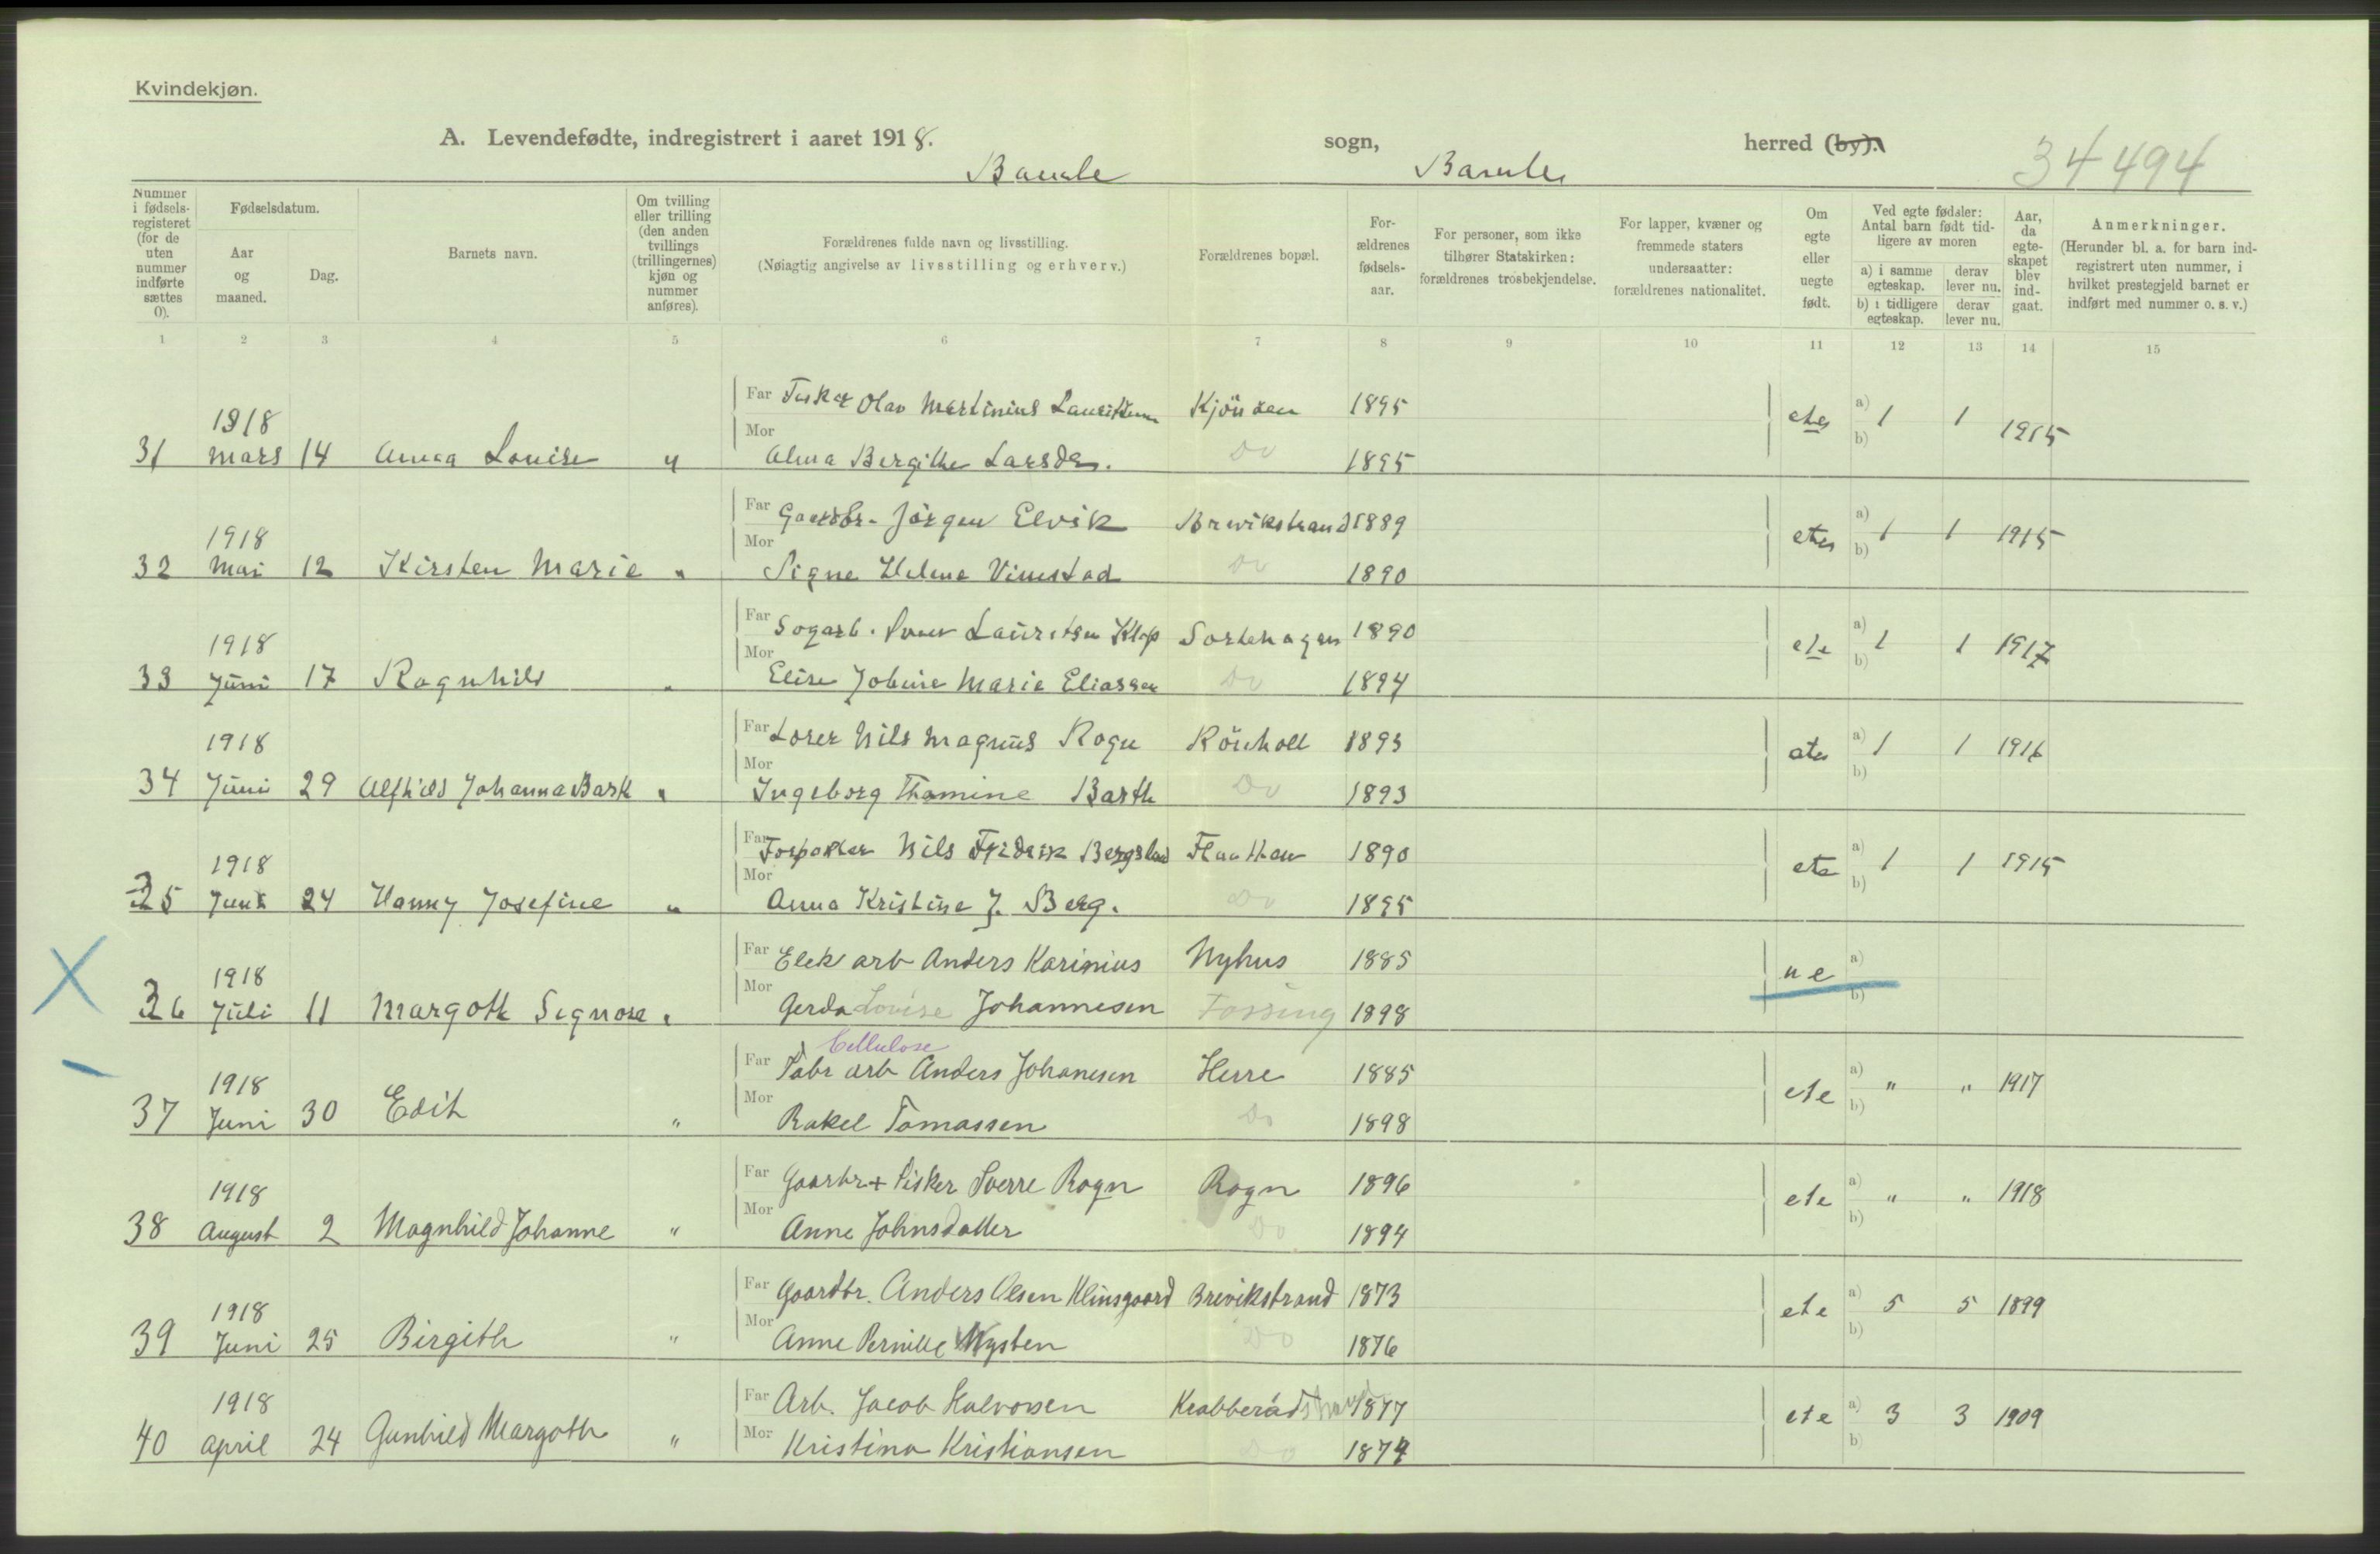 Kvindekjøn.
A. Levendefødte, indregistrert i aaret 1918.
sogn,
herred (by).
Bamble
Bamble
34494
Nummer i fødsels-registeret (for de uten nummer indførte sættes 0).
Fødselsdatum.
Aar og maaned.
Dag.
Barnets navn.
Om tvilling eller trilling (den anden tvillings (trillingernes) kjøn og nummer anføres).
Forældrenes fulde navn og livsstilling.
(Nøiagtig angivelse av livsstilling og erhverv.)
Forældrenes bopæl.
For-ældrenes fødsels-aar.
For personer, som ikke tilhører Statskirken: forældrenes trosbekjendelse.
For lapper, kvæner og fremmede staters undersaatter: forældrenes nationalitet.
Om egte eller uegte født.
Ved egte fødsler: Antal barn født tid-ligere av moren
a) i samme egteskap.
derav lever nu.
b) i tidligere egteskap.
derav lever nu.
Aar, da egte-skapet blev ind-gaat.
Anmerkninger.
(Herunder bl. a. for barn ind-registrert uten nummer, i hvilket prestegjeld barnet er indført med nummer o. s. v.)
1 2 3 4 5 6 7 8 9 10 11 12 13 14 15
Far Fisker Olav Martinius Lauritsen 1895
1918 a) 1 1 1915
Mor b)
31 Mars 14 Anna Louise " Alma Bergithe Larsdtr. Do 1895
Far Gaardbr. Jörgen Elvik Brevikstrand 1889
1918 a) 1 1 1915
Mor b)
32 Mai 12 Kirsten Marie " Signe Helene Do 1890
Far Lauritsen Klep 1890
1918 ete a) 1 1 1917
Mor b)
33 Jüni 17 Ragnhild " Elise Marie Eliassen Do 1894
Far Nils Magnüs Rogn Rönholt 1893
1918 a) 1 1 1916
Mor b)
34 Jüni 29 Alfhild Johanna Bark " Ingeborg Thomine Barth Do 1893
Far Forpakter Nils Fredrik 1890
1918 ete a) 1 1 1915
Mor b)
35 Juni 24 Hanny Josefine " Anna Kristine J. Berg. Do 1895
Far Elek arb Anders Karinius Nyhus 1885
X 1918 u e a)
Mor b)
36 Jüli 11 Margoth Signora " Gerda Lovise Johannesen Fossing 1898
Cellulose
Far Fabr arb Anders Johanesen Herre 1885
1918 ete a) " " 1917
Mor b)
37 Juni 30 Edith " Rakel Tomassen Do 1898
Far Gaarbr + Fisker Sverre Rogn Rogn 1896
1918 ete a) " " 1918
Mor b)
38 August 2 Magnhild Johanne " Anne Johnsdatter Do 1894
Far Gaardbr. Anders Olsen Brevikstrand 1873
1918 ete a) 5 5 1899
Mor b)
39 Juni 25 Birgith " Anne Pernille Do 1876
Far Arb. Jacob Halvorsen 1877
1918 ete a) 3 3 1909
Mor b)
40 April 24 Gunhild Margoth " Kristina Kristiansen Do 1874